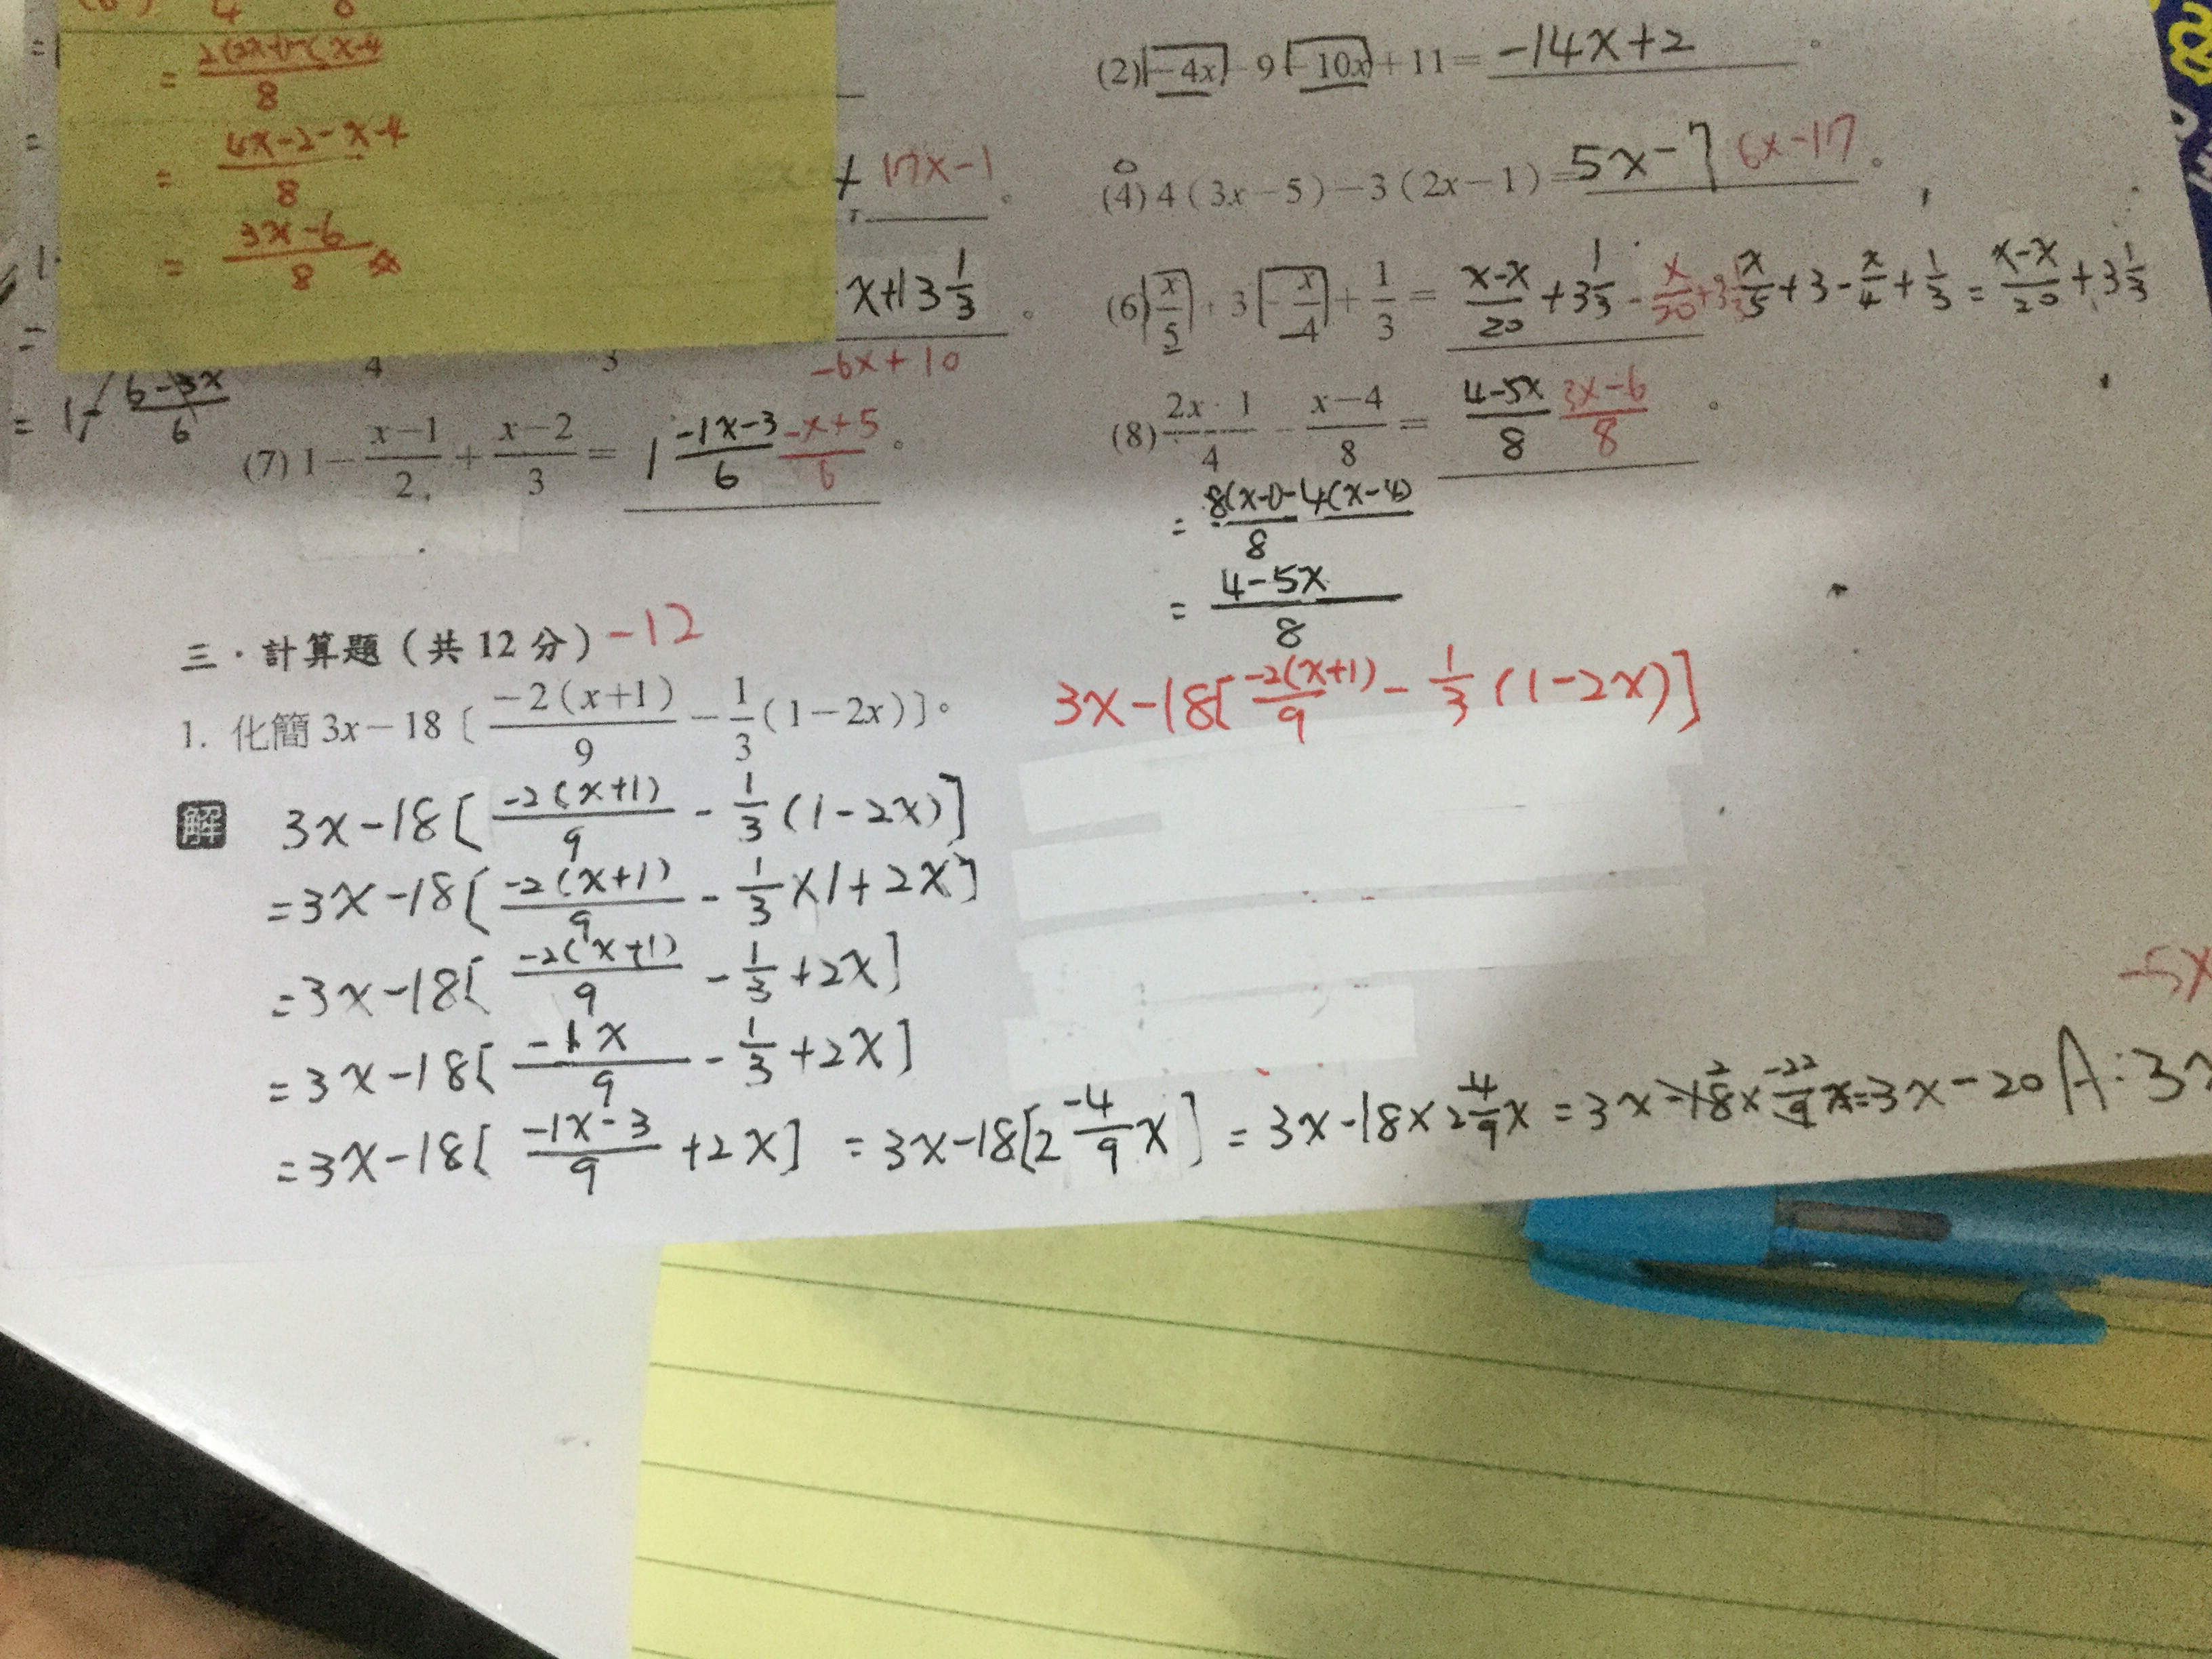 = \frac{2(2x-1)-(x-4}{8}
= \frac{4x-2-x-4}{8}
= \frac{3x-6}{8}
(2) -4x-9-10x+11= -14x+2 。
17x-1 。
(4) 4(3x-5)-3(2x-1)= 5x-7 6x-17 。
x+13\frac{1}{3} 。
-6x+10
(6) \frac{x}{5}+3-\frac{x}{4}+\frac{1}{3}= \frac{x-x}{20}+3\frac{1}{3} \frac{x}{5}+3-\frac{x}{4}+\frac{1}{3}=\frac{x-x}{20}+3\frac{1}{3}
= 1-\frac{6-3x}{6}
(7) 1-\frac{x-1}{2}+\frac{x-2}{3}= 1\frac{-1x-3}{6} \frac{-x+5}{6} 。
(8) \frac{2x-1}{4}-\frac{x-4}{8}= \frac{4-5x}{8} \frac{3x-6}{8} 。
= \frac{8(x-1)-4(x-4)}{8}
= \frac{4-5x}{8}
三·計算題(共12分) -12
1. 化簡 3x-18〔\frac{-2(x+1)}{9}-\frac{1}{3}(1-2x)〕。
3x-18[\frac{-2(x+1)}{9}-\frac{1}{3}(1-2x)]
解 3x-18[\frac{-2(x+1)}{9}-\frac{1}{3}(1-2x)]
=3x-18[\frac{-2(x+1)}{9}-\frac{1}{3}×1+2x]
=3x-18[\frac{-2(x+1)}{9}-\frac{1}{3}+2x]
=3x-18[\frac{-1x}{9}-\frac{1}{3}+2x]
=3x-18[\frac{-1x-3}{9}+2x] =3x-18[2\frac{-4}{9}x] =3x-18×2\frac{-4}{9}x =3x-18×\frac{-22}{9}x=3x-20 A:3x
-5x